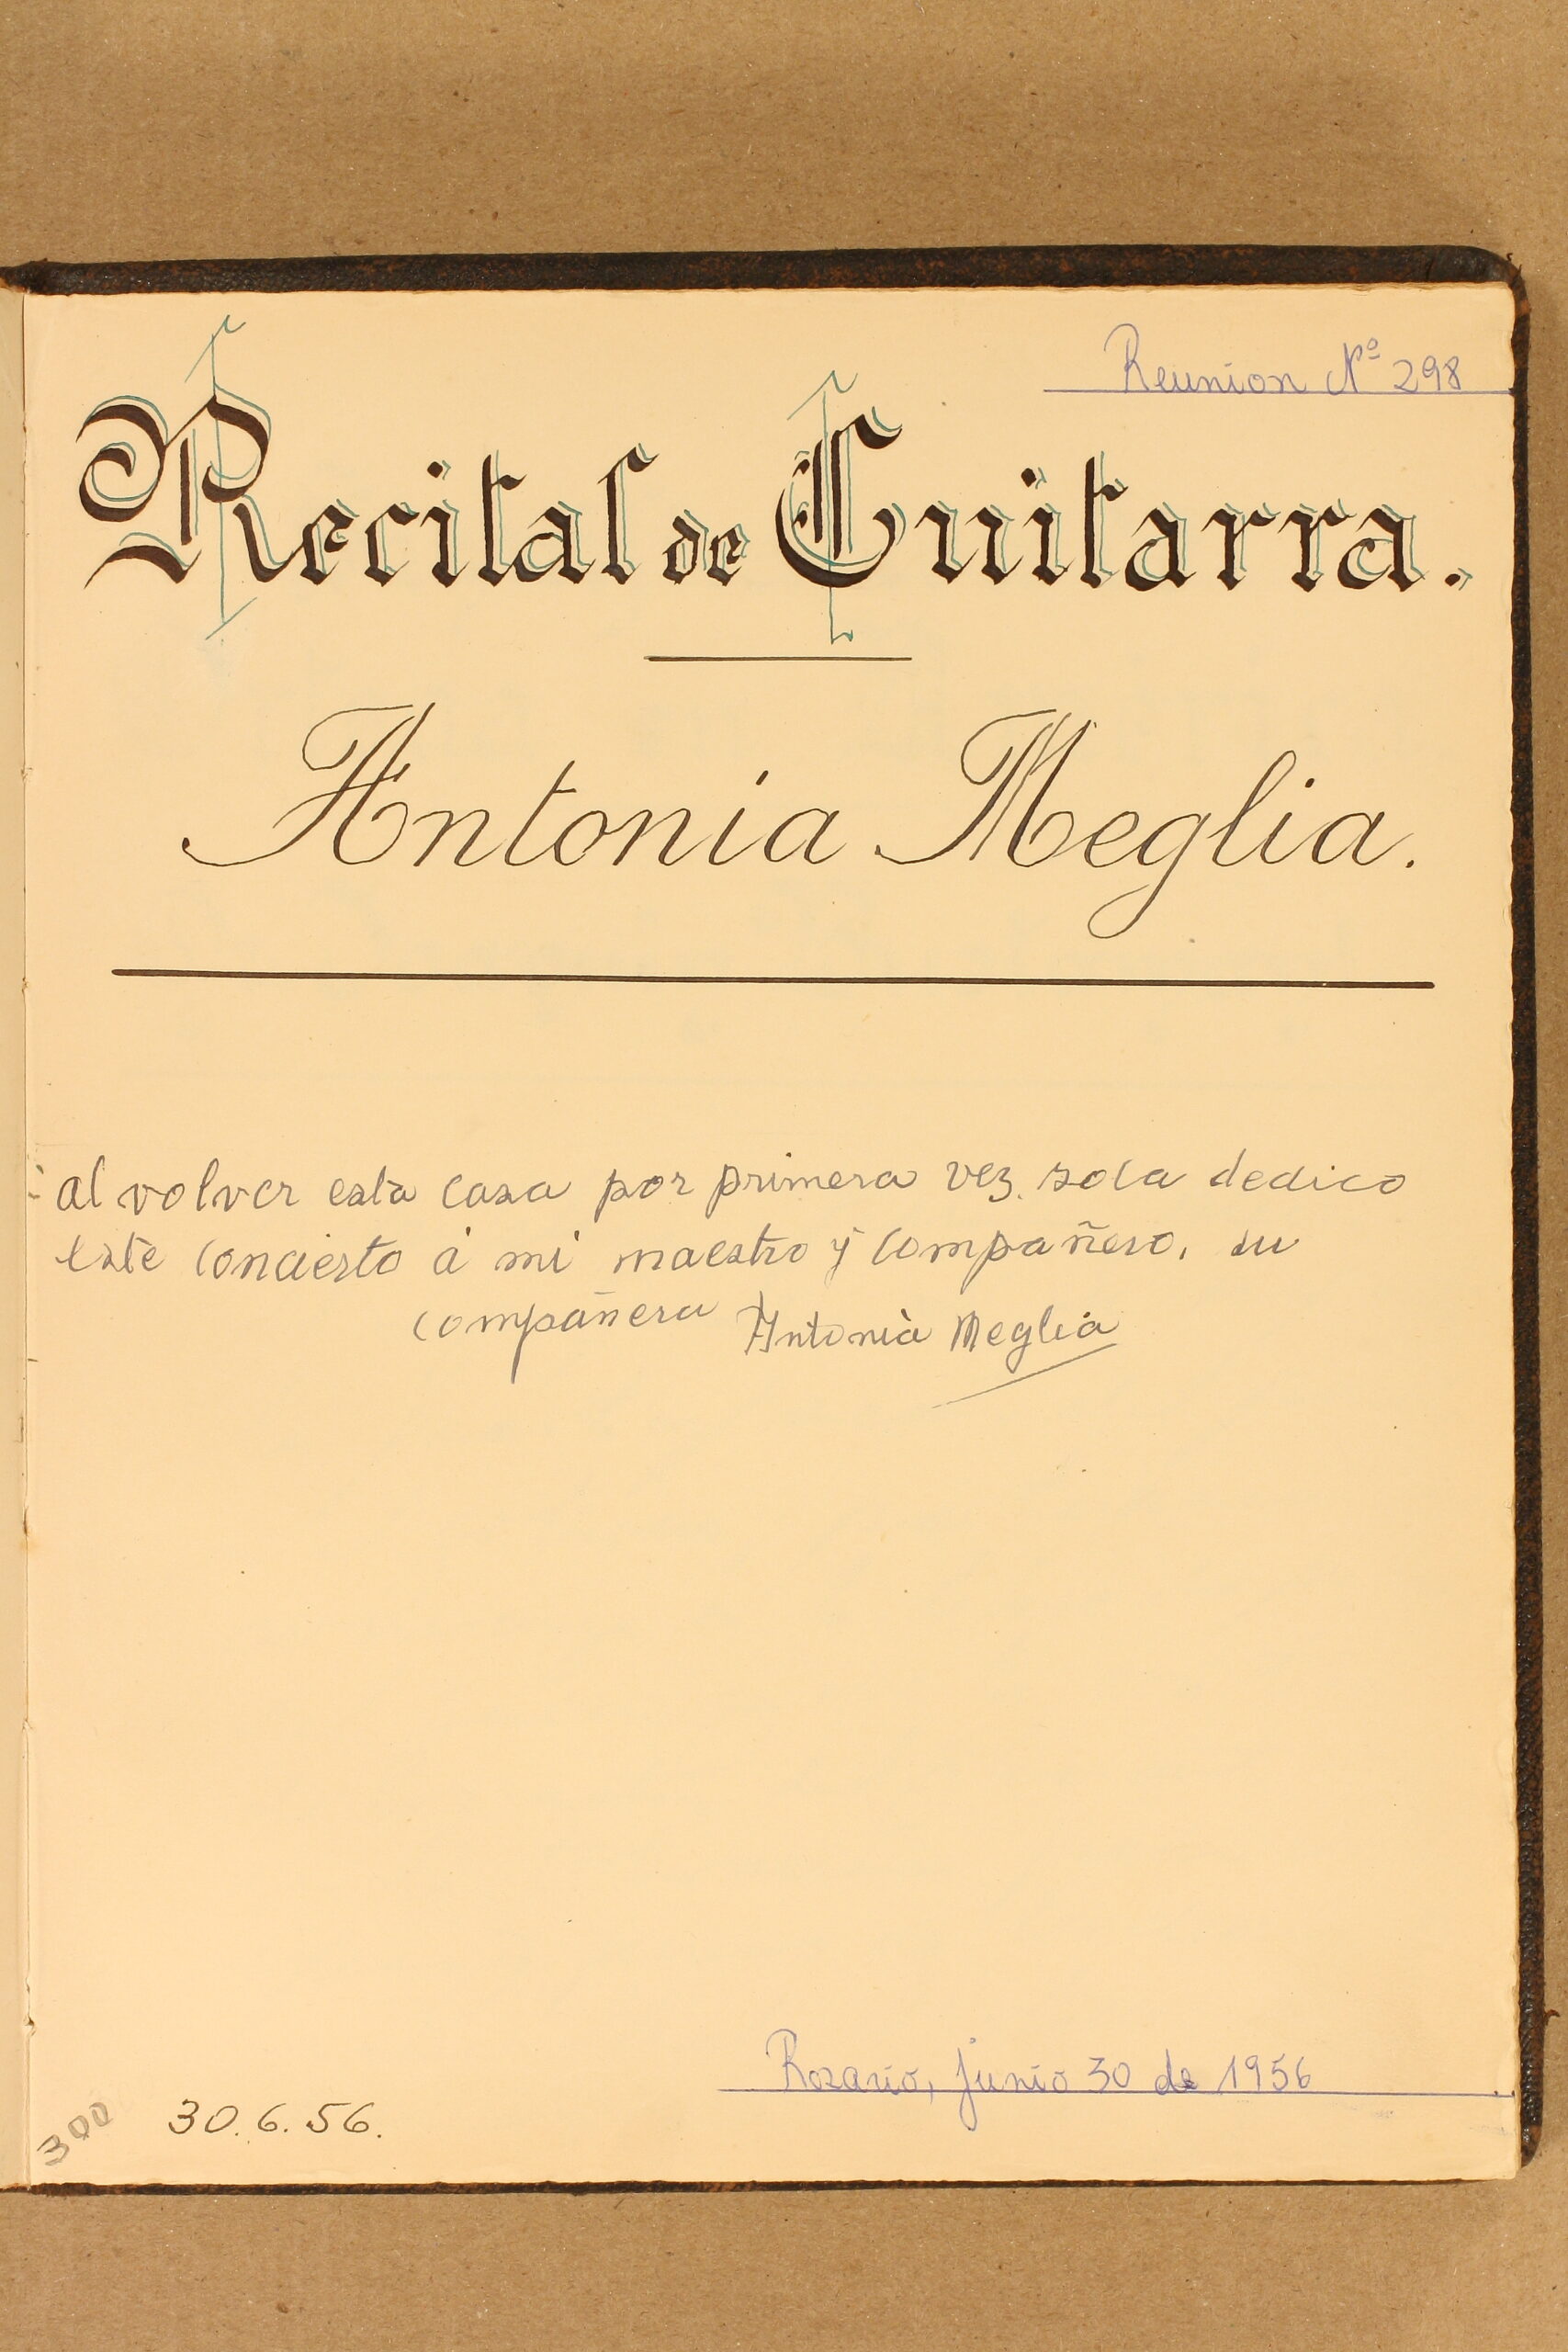 Reunion Nº 298
Recital de Guitarra.
Antonia Meglia.
al volver esta casa por primera vez. sola dedico
este concierto á mi maestro y compañero, su
compañera Antonia Meglia
Rosario, junio 30 de 1956
30.6.56.
300